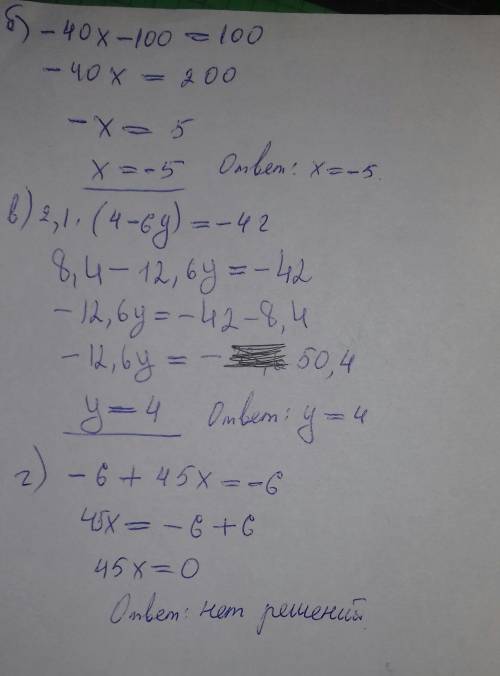 б) -40x-100=100
-40x = 200
-x = 5
x=-5 Ответ: x=-5.
в) 2,1·(4-6y)=-42
8,4-12,6y=-42
-12,6y=-42-8,4
-12,6y = - 50,4
y=4 Ответ: y=4
г) -6+45x=-6
45x=-6+6
45x=0
Ответ: нет решений